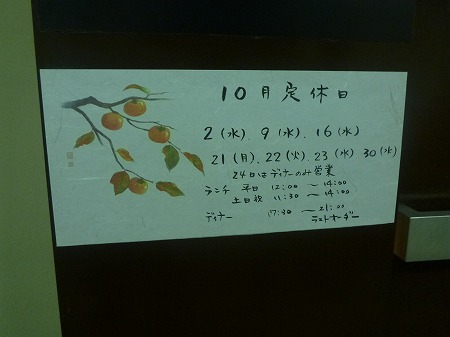 10月定休日
2(水)、9(水)、16(水)
21(月)、22(火)、23(水)30(水)
24日はディナーのみ営業
ランチ 平日 12:00 ～ 14:00
土日祝 11:30 ～ 14:00
ディナー 17:30 ～ 21:00
ラストオーダー